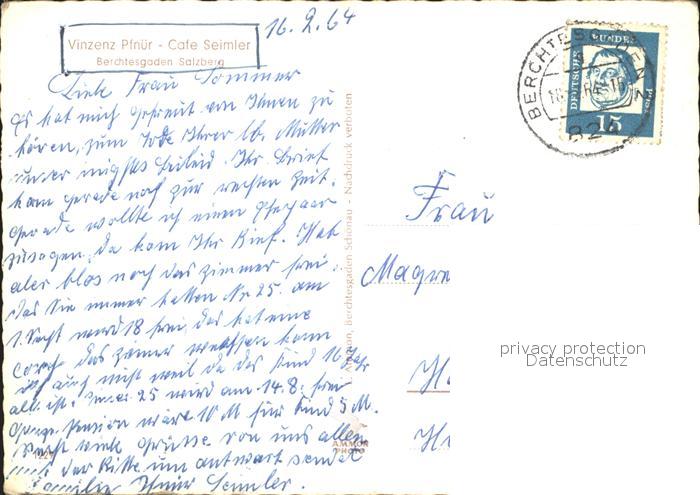 16.2.64
Vinzenz Pfnür - Cafe Seimler
Berchtesgaden Salzberg
Liebe Frau Sommer
Es hat mich gefreut von Ihnen zu
hören, zum Tode Ihrer lb. Mutter
unser Beileid. Ihr Brief
kam gerade noch zur rechten Zeit.
gerade wollte ich einen Ehepaar
zusagen, da kam Ihr Brief. Hab
aber blos noch das Zimmer frei
das Sie immer hatten Nr 25. am
wird 18 frei, das hat eine
das Zimmer kann
ich auch nicht weil da das Kind 10 Jahr
alt ist. 25 wird am 14.8. frei
Pension wäre 10 M für Kind 5 M.
Recht viele Grüsse von uns allen
mit der Bitte um Antwort sendet
Familie Pfnür Seimler.
Berchtesgaden Schönau - Nachdruck verboten
BERCHTESGADEN
DEUTSCHE BUNDESPOST
15
Frau
Magre
privacy protection
Datenschutz